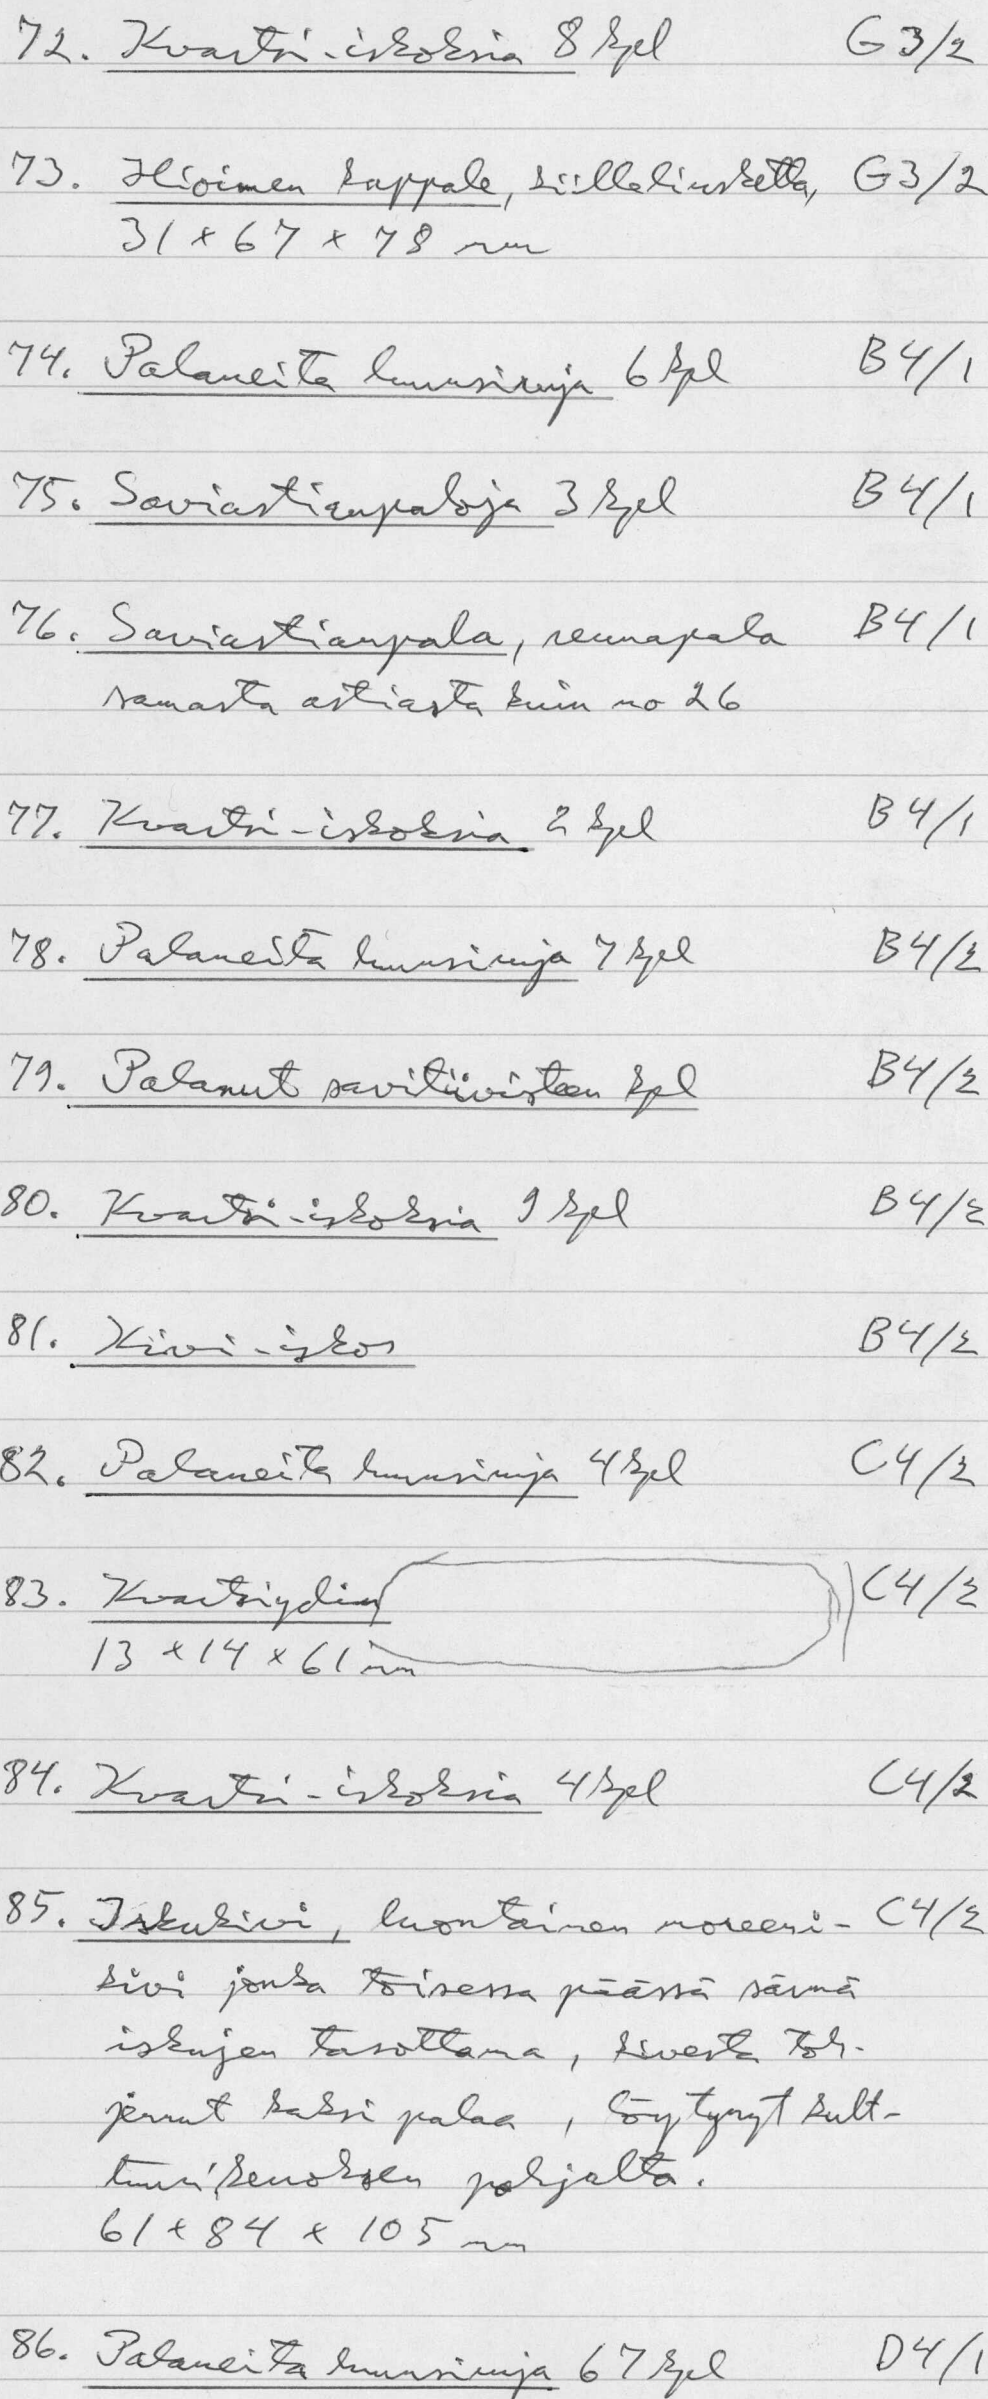 72. Kvartsi-iskoksia 8 kpl G3/2
73. Hioimen kappale, kiilleliusketta, G3/2
31 x 67 x 78 mm
74. Palaneita luunsiruja 6 kpl B4/1
75. Saviastianpaloja 3 kpl B4/1
76. Saviastianpala, reunapala B4/1
samasta astiasta kuin no 26
77. Kvartsi-iskoksia 2 kpl B4/1
78. Palaneita luunsiruja 7 kpl B4/2
79. Palanut savitiivisteen kpl B4/2
80. Kvartsi-iskoksia 9 kpl B4/2
81. Kivi-iskos B4/2
82. Palaneita luunsiruja 4 kpl C4/2
83. Kvartsiydin C4/2
13 x 14 x 61 mm
84. Kvartsi-iskoksia 4 kpl C4/2
85. Iskukivi, luontainen moreeni- C4/2
kivi jonka toisessa päässä särmä
iskujen tasottama, kivestä loh-
jennut kaksi palaa, löytynyt kult-
tuurikerroksen pohjalta.
61 x 84 x 105 mm
86. Palaneita luunsiruja 67 kpl D4/1